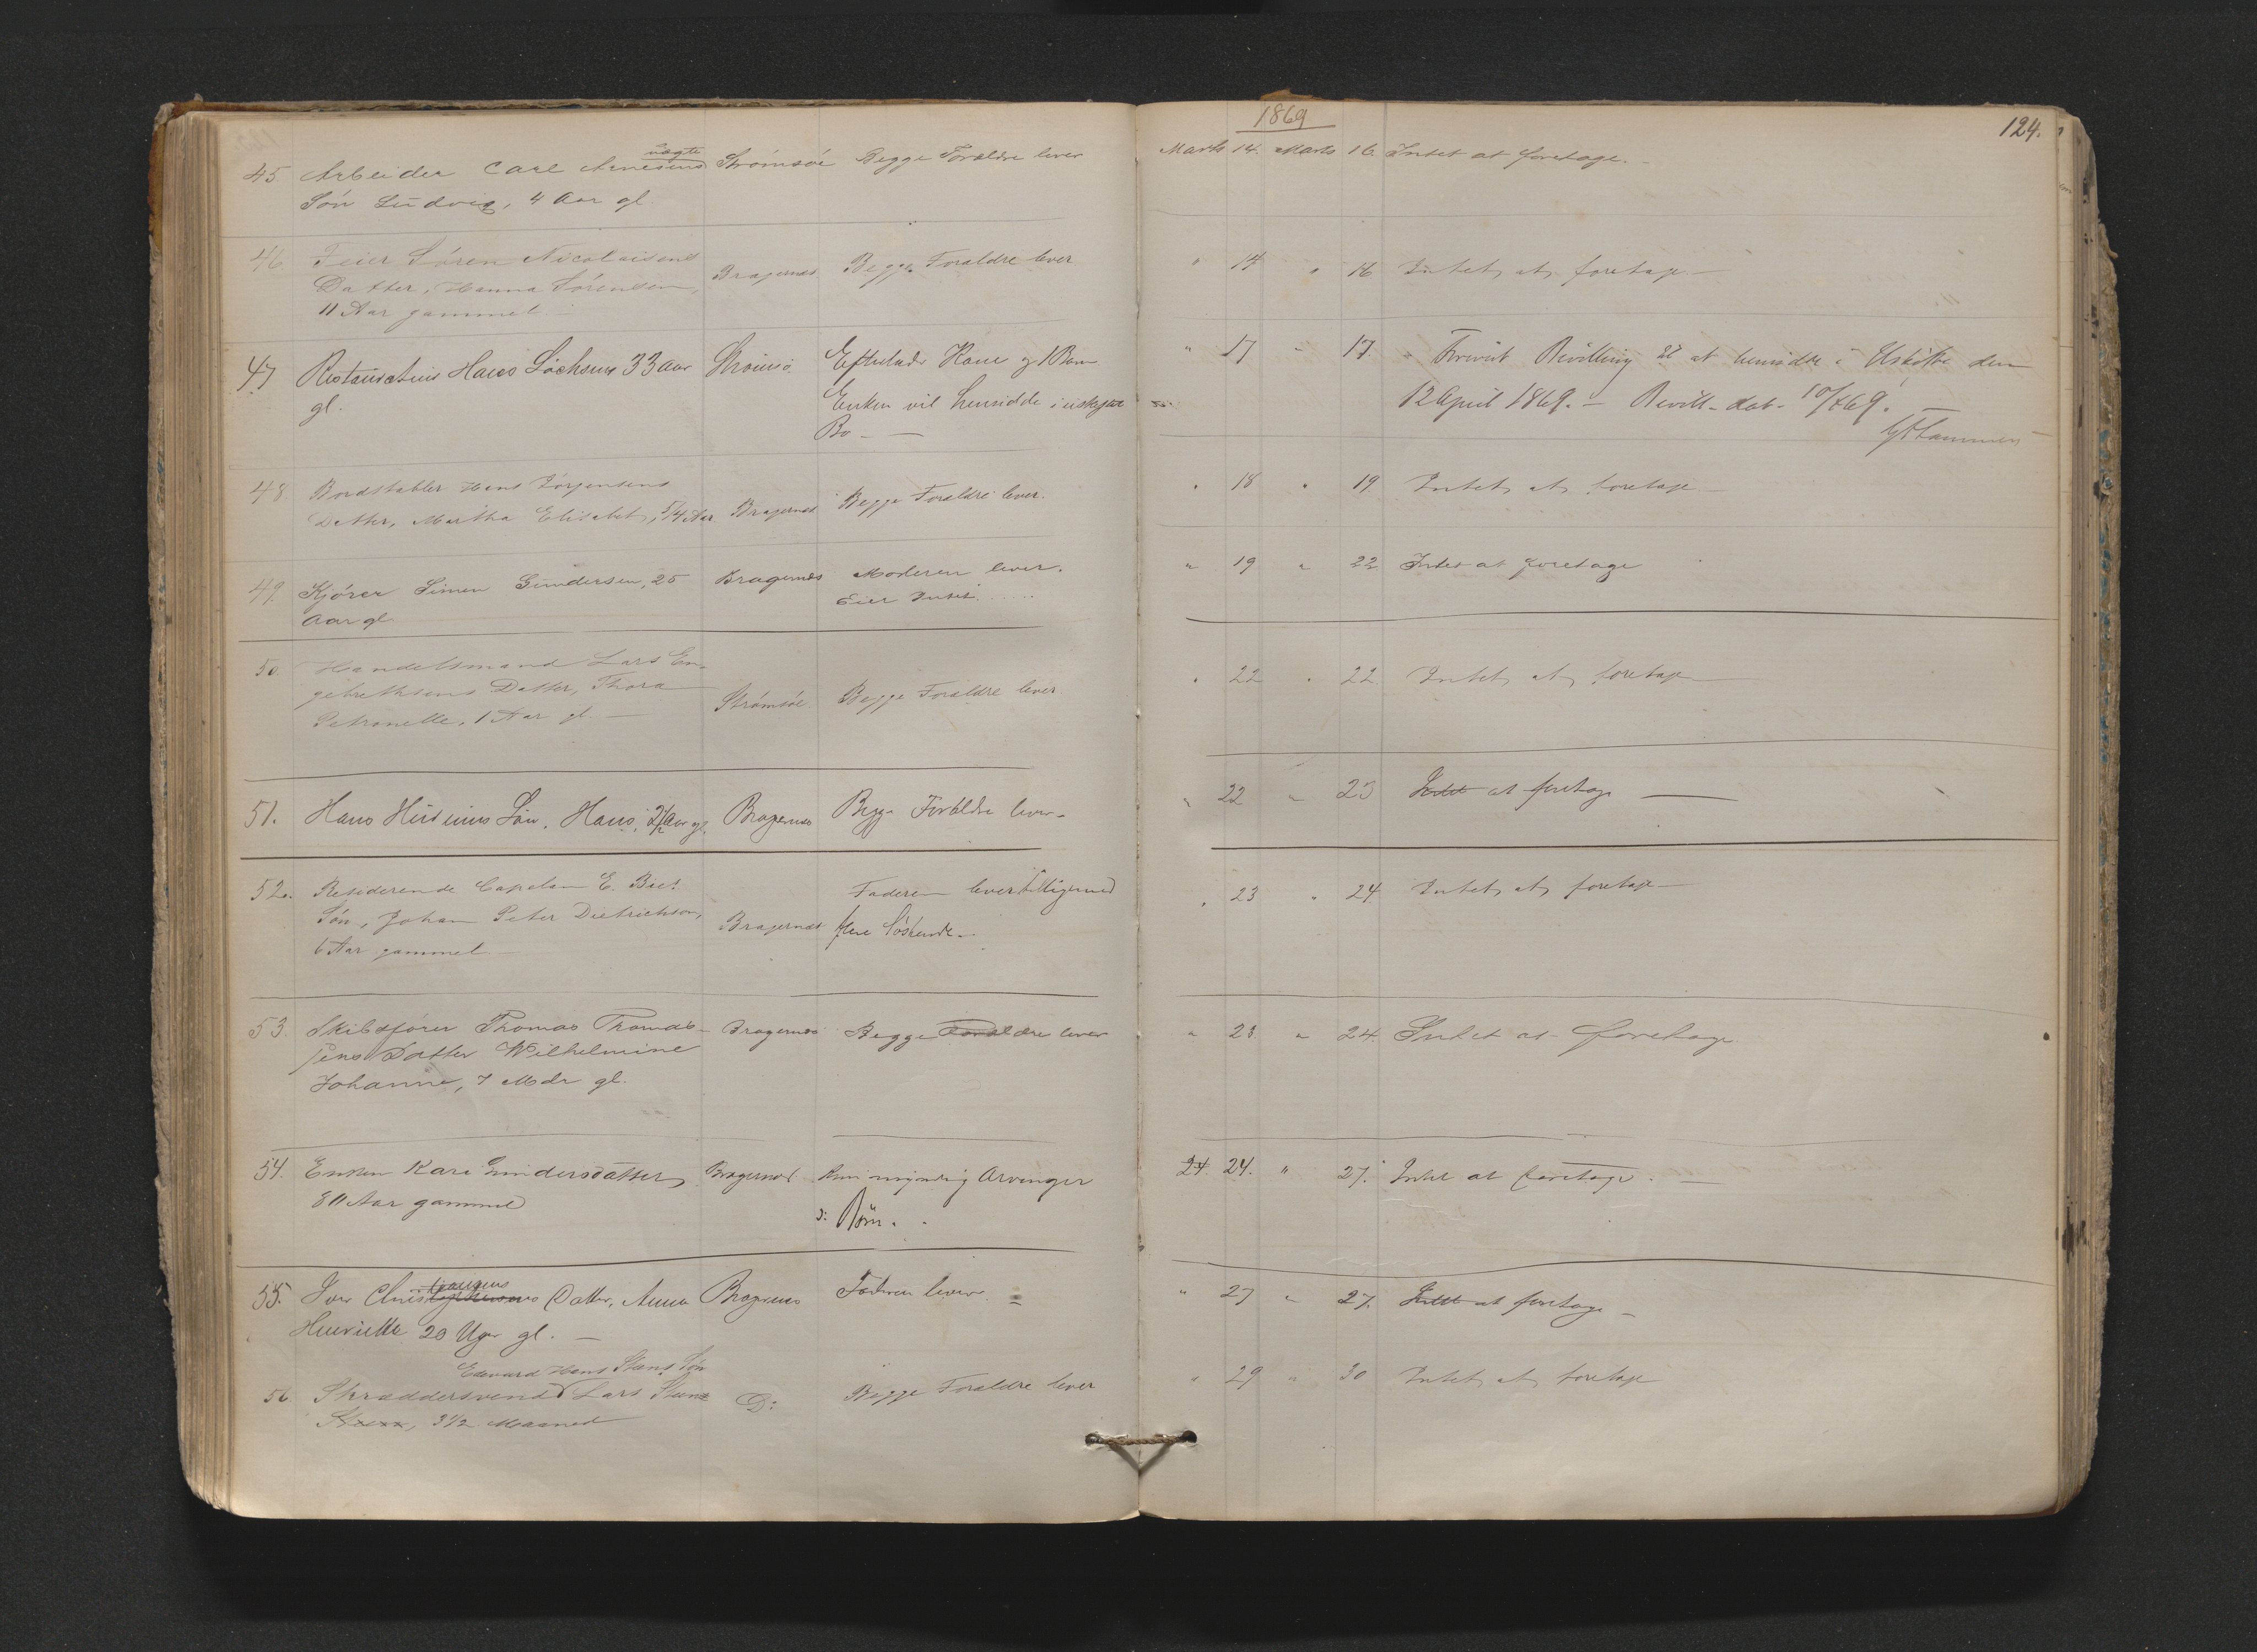 1869
124.
45 Arbeider Carl Arnesens ægte Strømsøe Begge Forældre lever Marts 14. Marts 16. Intet at foretage.
Søn Ludvig, 4 Aar gl
46 Feier Søren Nicolaisens Bragernæs Begge Forældre lever " 14 " 16 Intet at foretage
Datter, Hanna Sørensen,
11 Aar gammel
47 Hans 33 Aar Strømsø. Efterlader Kone og 1 Barn " 17 " 17. Bevilling til at hensidde i Uskifte den
gl. Enken vil hensidde i uskiftet 12 April 1869. - Bevill. dat.
Bo
48 Bordstabler Hans Jørgensens Bragernæs Begge Forældre lever. " 18 " 19 Intet at foretage
Datter, Martha Elisabet, 5/4 Aar
49. Kjører Simen Gundersen, 25 Bragernæs Moderen lever. " 19 " 22 Intet at foretage
Aar gl. Eier Intet.
50. Handelsmand Lars En- Strømsøe Begge Forældre lever " 22 " 22. Intet at foretage
gebrethsens Datter, Thora
Petronelle, 1 Aar gl.
51. Hans Søn, Hans, 2½ Aar gl. Bragernæs Begge Forældre lever " 22 " 23 Intet at foretage
52. Residerende Capelan E. Bragernæs Faderen lever tilligemed " 23 " 24 Intet at foretage
Søn, Johan Peter Dietrichson, flere Søskende
6 Aar gammel.
53. Skibsfører Thomas Thomas- Bragernæs Begge Forældre lever " 23 " 24 Intet at foretage
sens Datter Wilhelmine
Johanne, 7 Mdr gl.
54. Enken Kari Gundersdatter Bragernæs Kun myndig Arvinger 24. 24. " 27. Intet at foretage.
80 Aar gammel ɔ: Børn.
55. Datter, Anna Bragernæs Faderen lever. " 27 " 27. Intet at foretage
Henriette 20 Uger gl.
Edvard Hans Søn
56. Skræddersvend Lars D: Begge Forældre lever " 29 " 30 Intet at foretage
3½ Maaned